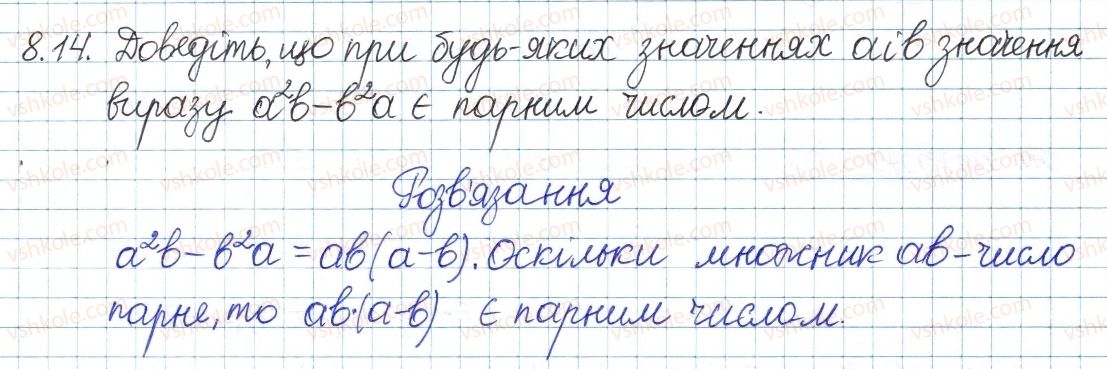 8.14. Доведіть, що при будь-яких значеннях a і b значення
виразу a²b-b²a є парним числом.
Розв'язання
a²b-b²a=ab(a-b). Оскільки множник ab-число
парне, то ab·(a-b) є парним числом.